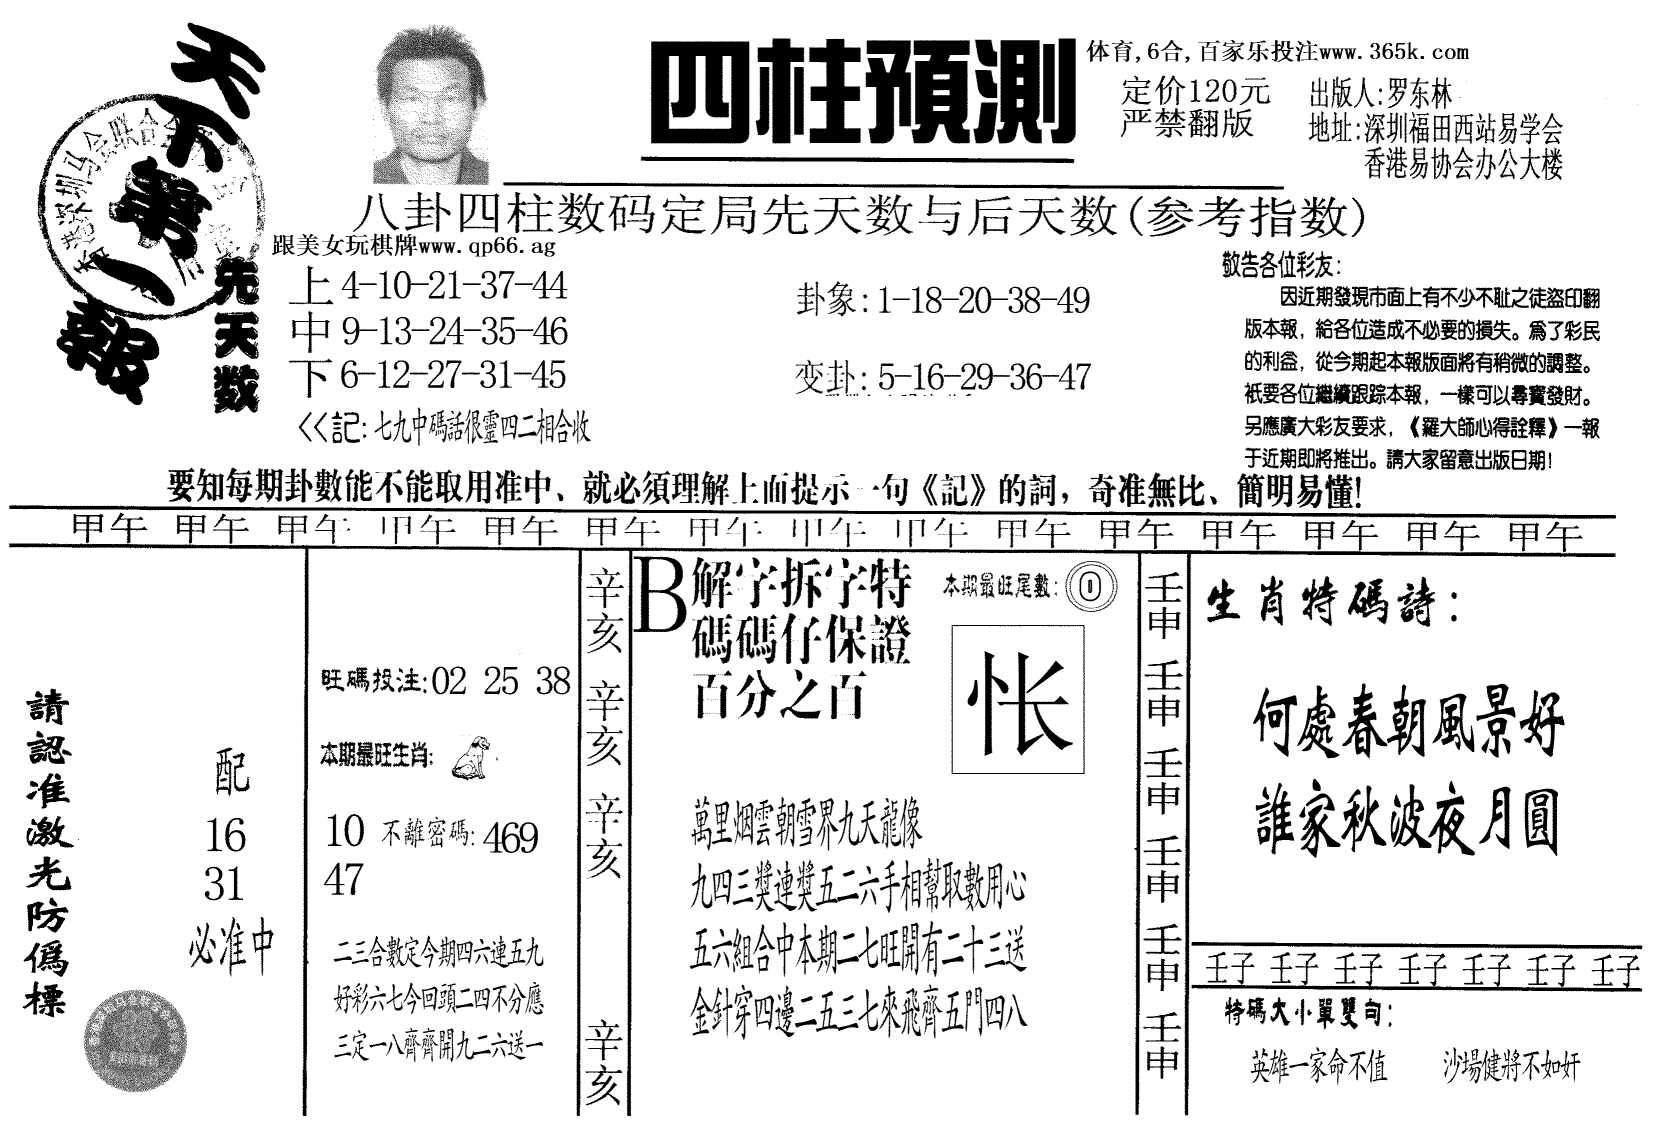 天下第一報
香港深圳马会联合会
四柱預測
体育,6合,百家乐投注www.365k.com
定价120元
严禁翻版
出版人:罗东林
地址:深圳福田西站易学会
香港易协会办公大楼
八卦四柱数码定局先天数与后天数(参考指数)
跟美女玩棋牌www.qp66.ag
先天数
上 4-10-21-37-44
中 9-13-24-35-46
下 6-12-27-31-45
<<記:七九中碼話很靈四二相合收
卦象:1-18-20-38-49
变卦:5-16-29-36-47
敬告各位彩友:
因近期發現市面上有不少不耻之徒盜印翻
版本報，給各位造成不必要的損失。爲了彩民
的利益，從今期起本報版面將有稍微的調整。
衹要各位繼續跟踪本報，一樣可以尋寶發財。
另應廣大彩友要求，《羅大師心得詮釋》一報
于近期即將推出。請大家留意出版日期!
要知每期卦數能不能取用准中、就必須理解上面提示一句《記》的詞，奇准無比、簡明易懂!
甲午 甲午 甲午 甲午 甲午 甲午 甲午 甲午 甲午 甲午 甲午 甲午 甲午 甲午 甲午
請認准激光防僞標
配
16
31
必准中
旺碼投注:02 25 38
本期最旺生肖:
10 不離密碼:469
47
二三合數定今期四六連五九
好彩六七今回頭二四不分應
三定一八齊齊開九二六送一
辛亥 辛亥 辛亥 辛亥
B
解字拆字特
碼碼仔保證
百分之百
本期最旺尾數:0
怅
萬里烟雲朝雪界九天龍像
九四三獎連獎五二六手相幫取數用心
五六組合中本期二七旺開有二十三送
金針穿四邊二五三七來飛齊五門四八
壬申 壬申 壬申 壬申 壬申 壬申
生肖特碼詩:
何處春朝風景好
誰家秋波夜月圓
壬子 壬子 壬子 壬子 壬子 壬子 壬子
特碼大小單雙句:
英雄一家命不值 沙場健將不如奸